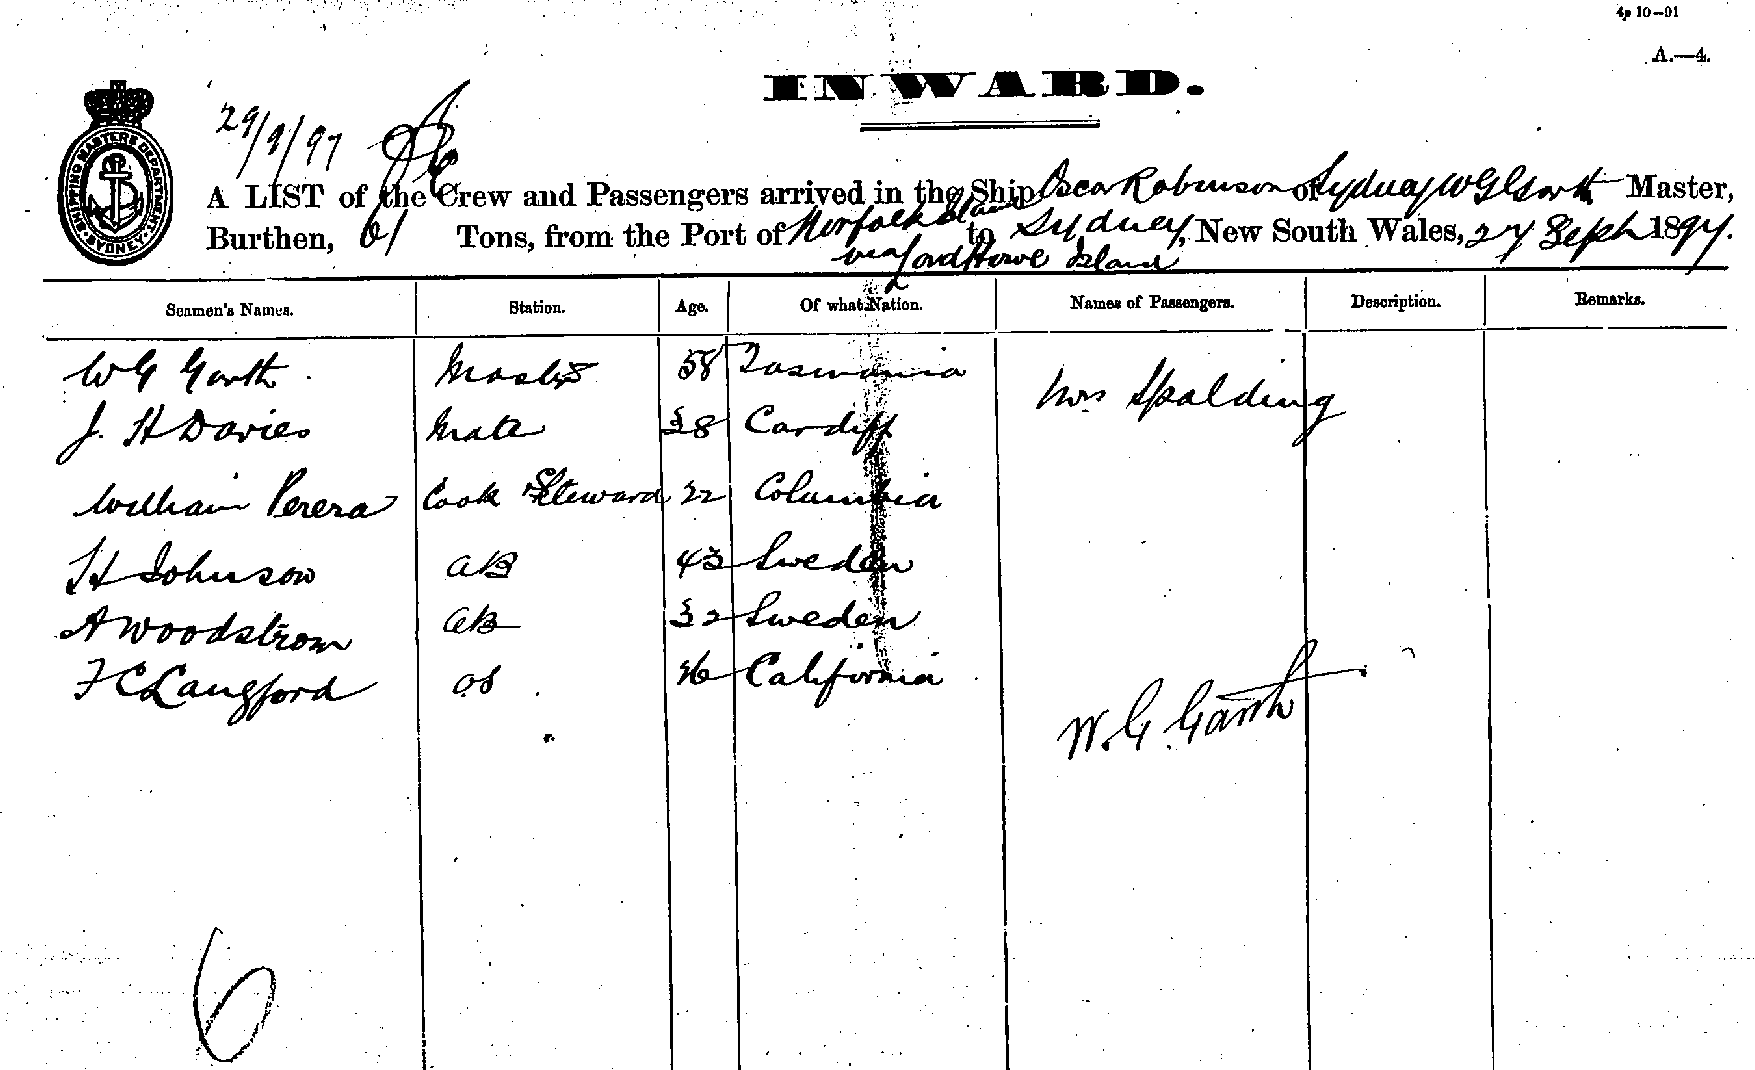 4p 10—91
A.—4.
INWARD.
29/9/97
SHIPPING MASTERS DEPARTMENT SYDNEY
A LIST of the Crew and Passengers arrived in the Ship Oscar Robinson of Sydney W G Garth Master,
Burthen, 61 Tons, from the Port of Norfolk Island to Sydney, New South Wales, 27 Sept 1897.
via Lord Howe Island
Seamen's Names. Station. Age. Of what Nation. Names of Passengers. Description. Remarks.
W G Garth Master 58 Tasmania
Mrs Spalding
J. H Davies Mate 38 Cardiff
William Perera Cook Steward 22 Columbia
H Johnson AB 43 Sweden
A Woodstrom AB 32 Sweden
F C Langford OS 26 California
W. G. Garth
6